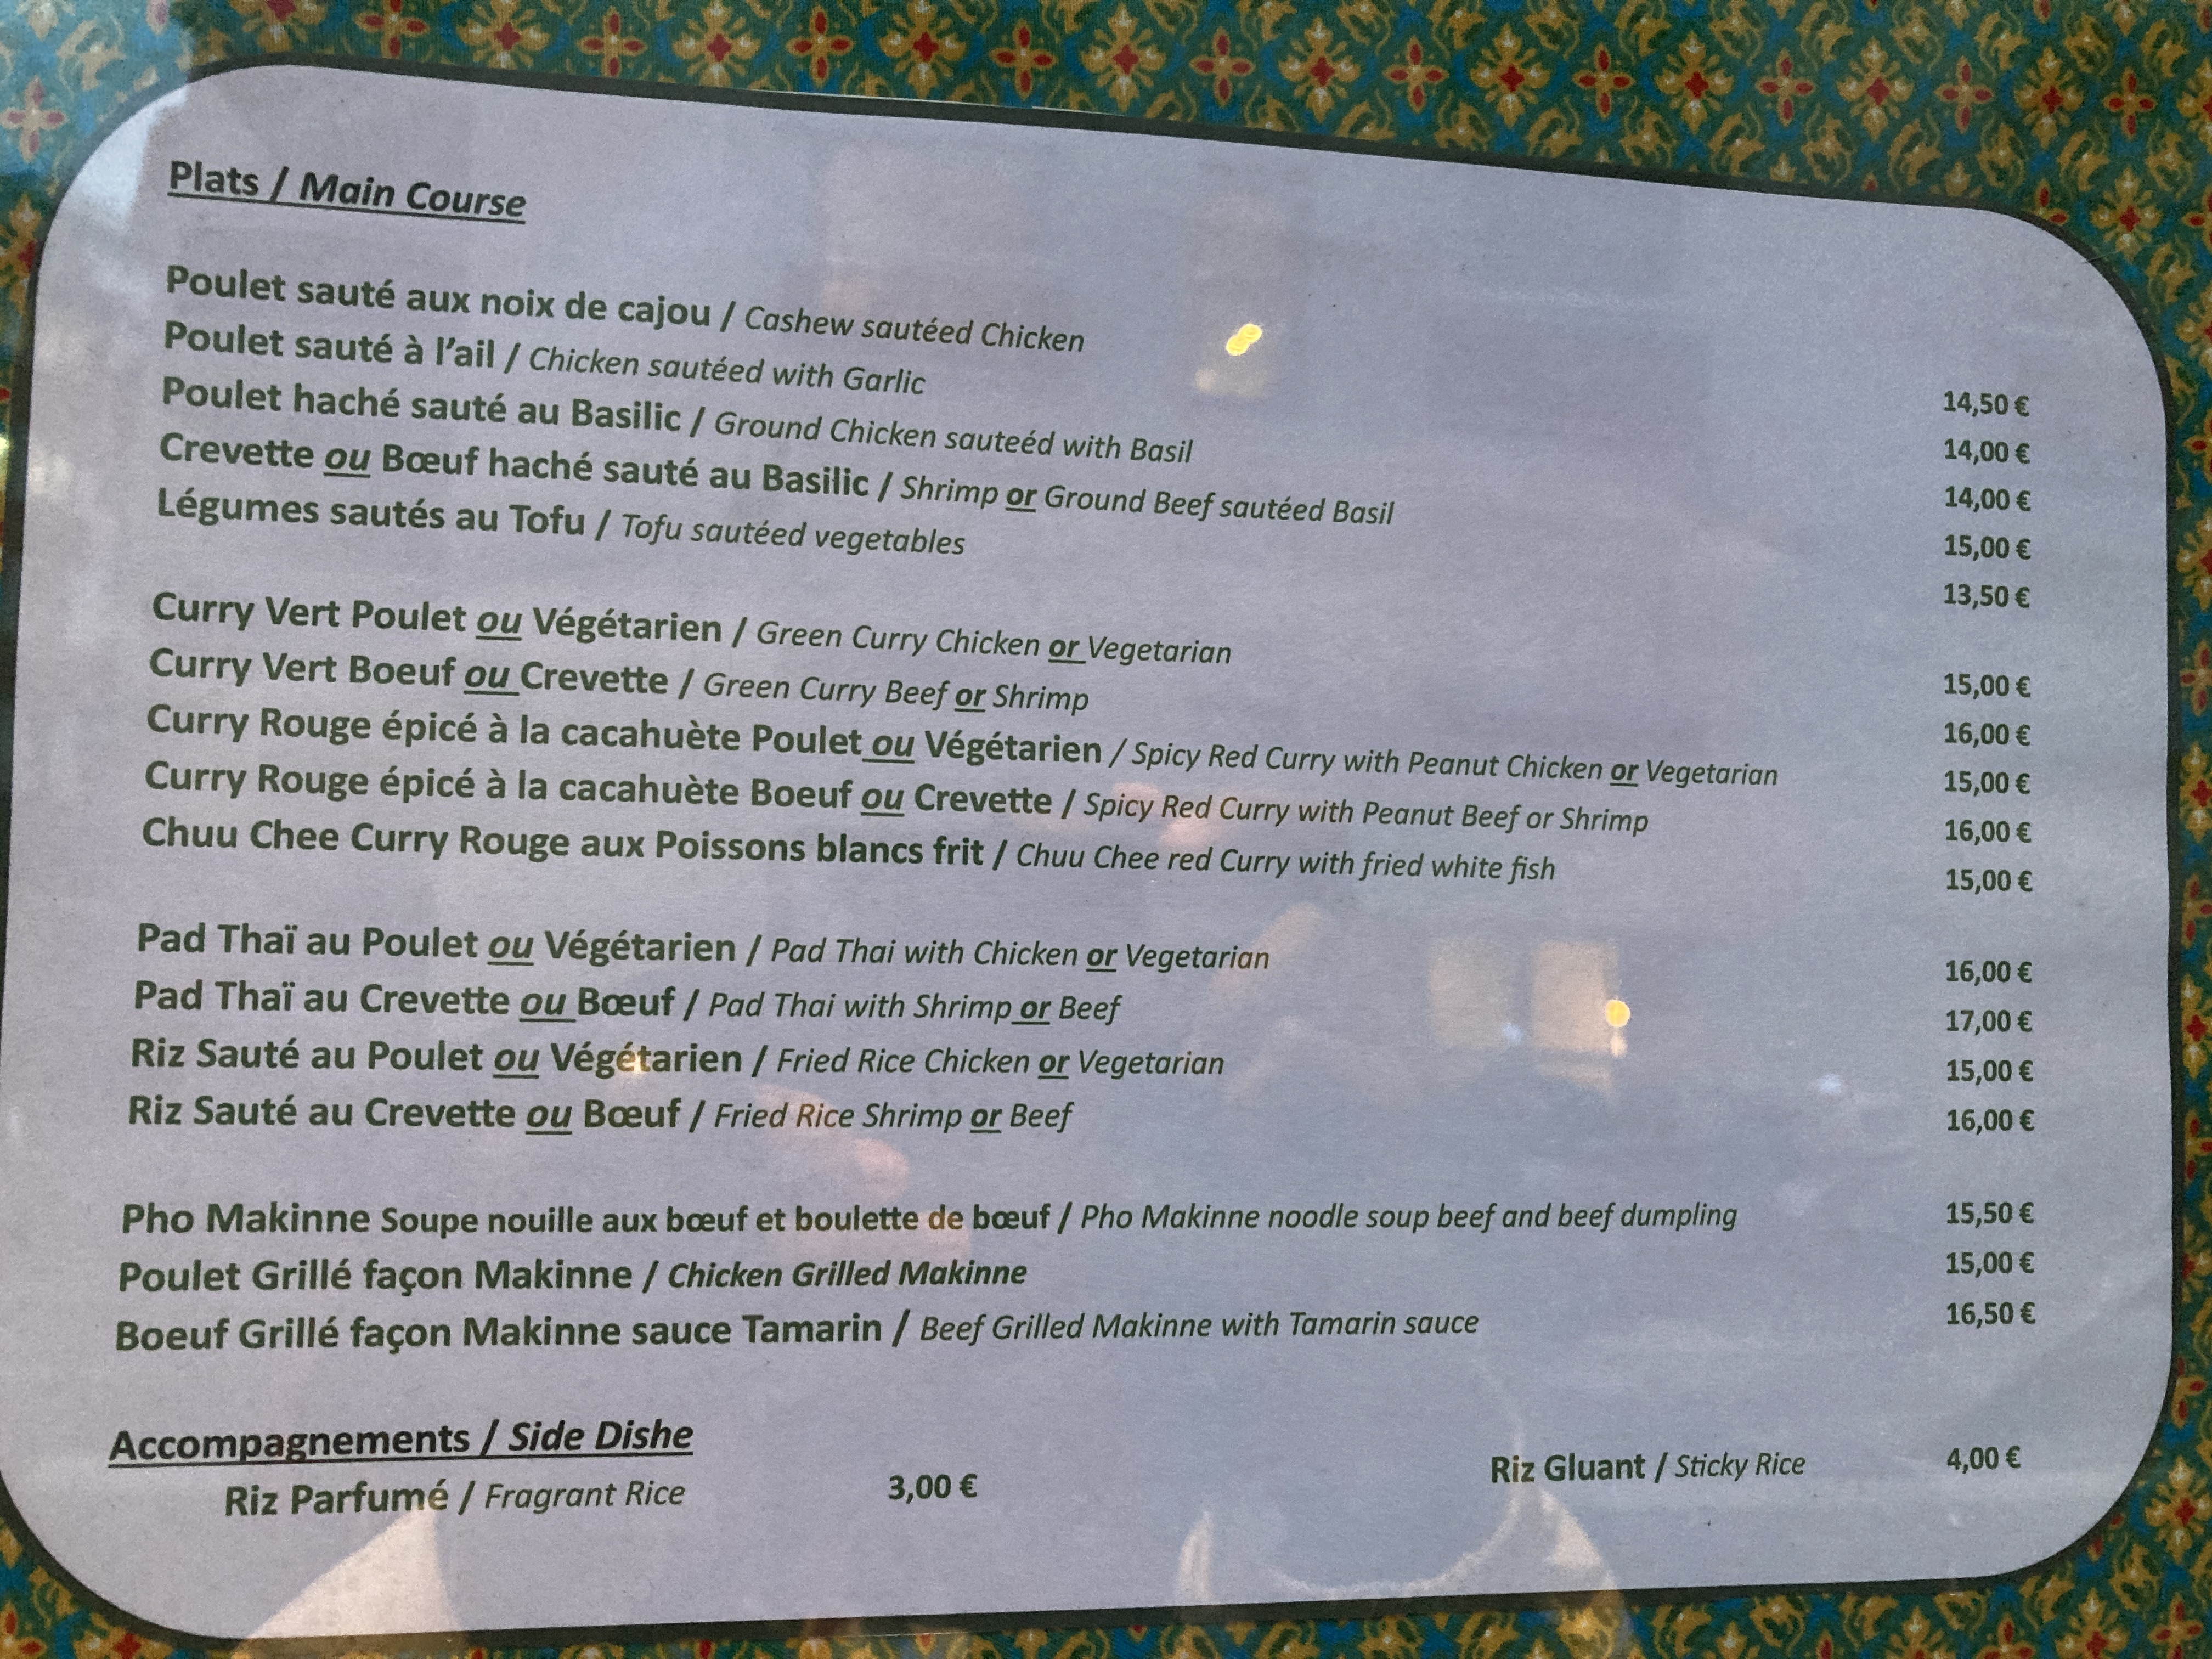 Plats / Main Course
Poulet sauté aux noix de cajou / Cashew sautéed Chicken 14,50 €
Poulet sauté à l'ail / Chicken sautéed with Garlic 14,00 €
Poulet haché sauté au Basilic / Ground Chicken sauteéd with Basil 14,00 €
Crevette ou Bœuf haché sauté au Basilic / Shrimp or Ground Beef sautéed Basil 15,00 €
Légumes sautés au Tofu / Tofu sautéed vegetables 13,50 €
Curry Vert Poulet ou Végétarien / Green Curry Chicken or Vegetarian 15,00 €
Curry Vert Boeuf ou Crevette / Green Curry Beef or Shrimp 16,00 €
Curry Rouge épicé à la cacahuète Poulet ou Végétarien / Spicy Red Curry with Peanut Chicken or Vegetarian 15,00 €
Curry Rouge épicé à la cacahuète Boeuf ou Crevette / Spicy Red Curry with Peanut Beef or Shrimp 16,00 €
Chuu Chee Curry Rouge aux Poissons blancs frit / Chuu Chee red Curry with fried white fish 15,00 €
Pad Thaï au Poulet ou Végétarien / Pad Thai with Chicken or Vegetarian 16,00 €
Pad Thaï au Crevette ou Bœuf / Pad Thai with Shrimp or Beef 17,00 €
Riz Sauté au Poulet ou Végétarien / Fried Rice Chicken or Vegetarian 15,00 €
Riz Sauté au Crevette ou Bœuf / Fried Rice Shrimp or Beef 16,00 €
Pho Makinne Soupe nouille aux bœuf et boulette de bœuf / Pho Makinne noodle soup beef and beef dumpling 15,50 €
Poulet Grillé façon Makinne / Chicken Grilled Makinne 15,00 €
Boeuf Grillé façon Makinne sauce Tamarin / Beef Grilled Makinne with Tamarin sauce 16,50 €
Accompagnements / Side Dishe
Riz Parfumé / Fragrant Rice 3,00 € Riz Gluant / Sticky Rice 4,00 €